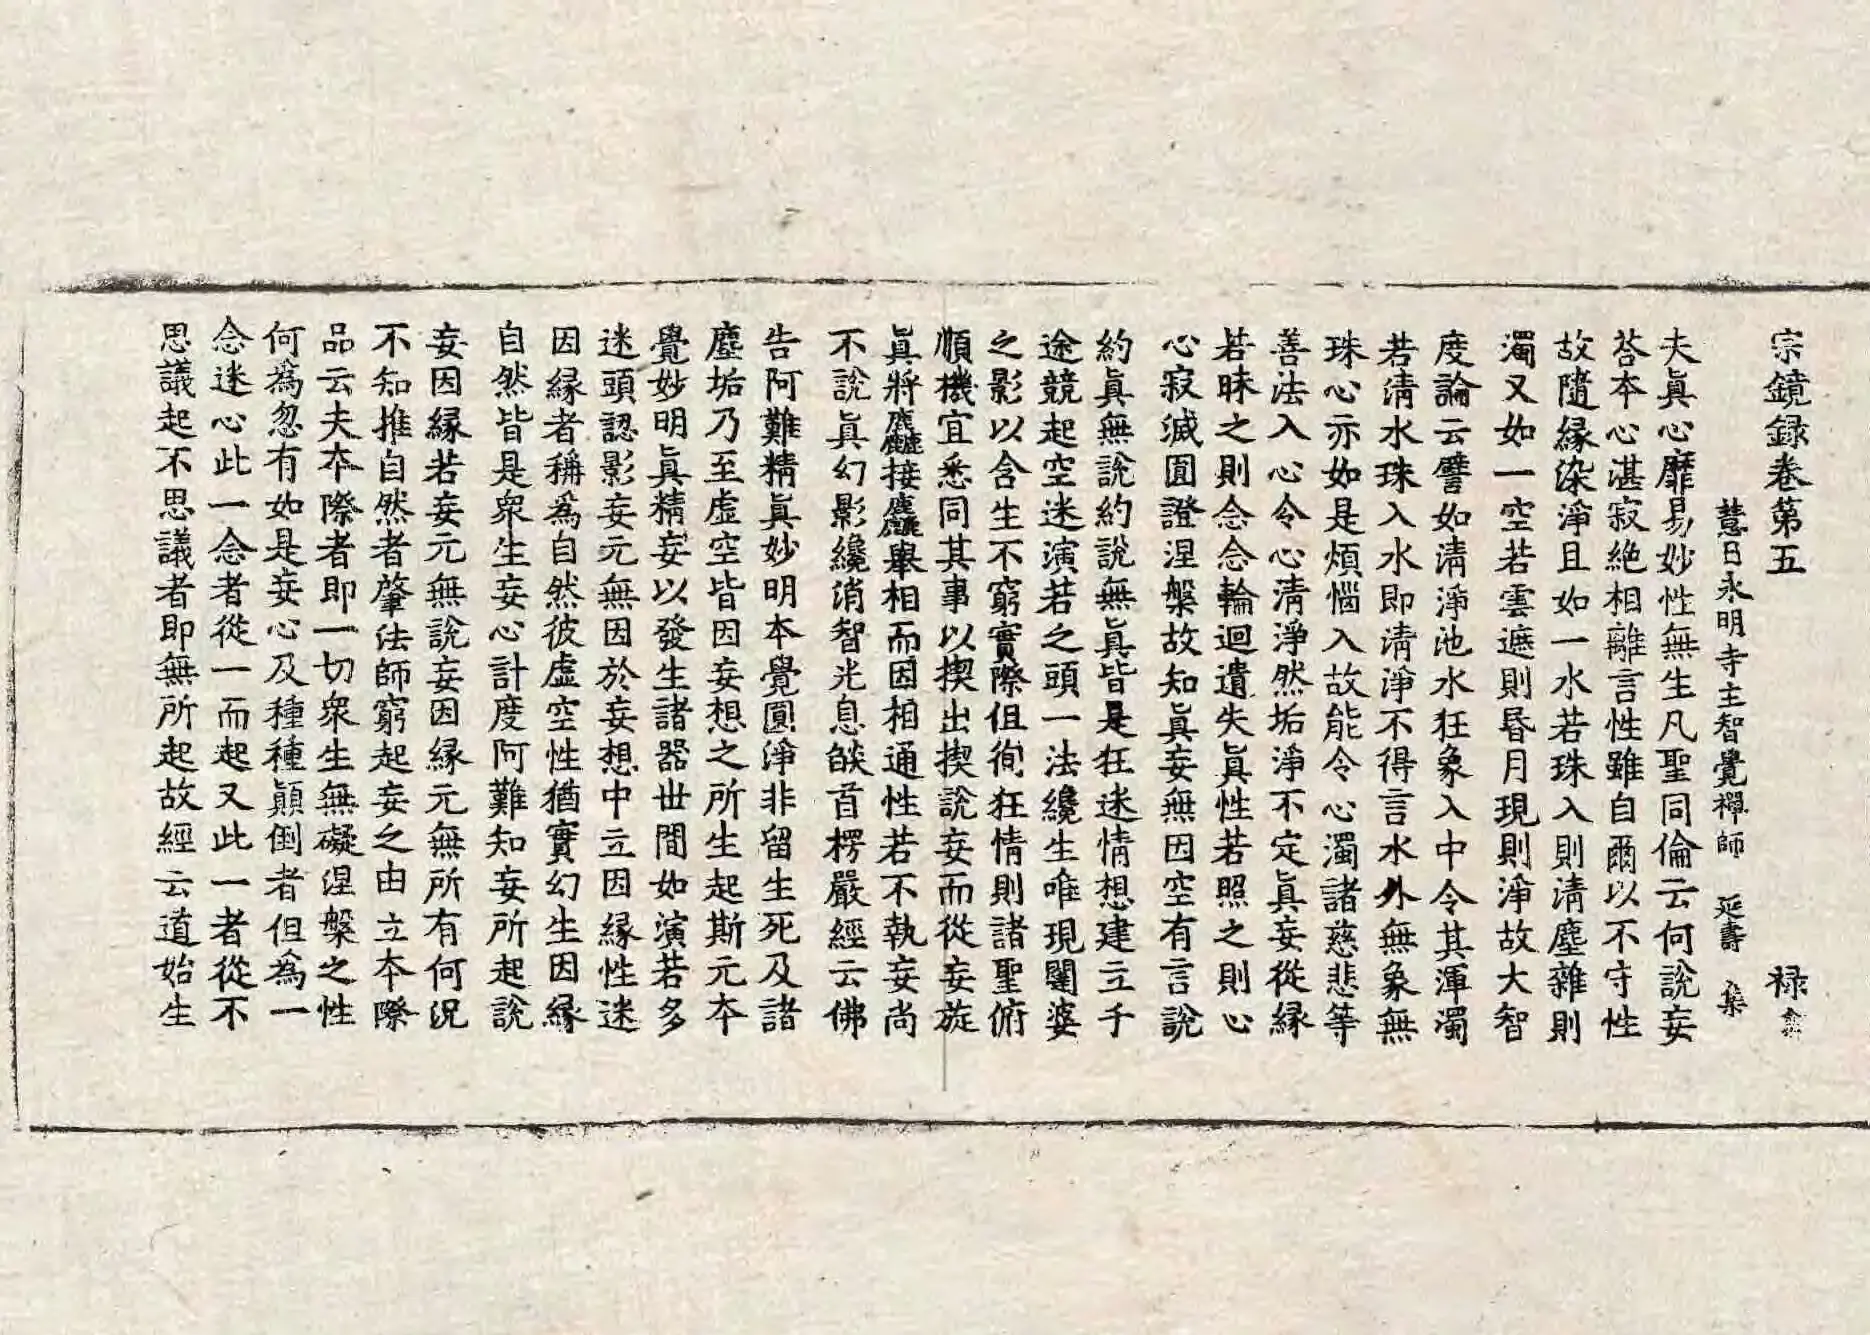 宗鏡録卷第五 禄
慧日永明寺主智覺禪師 延壽 集
夫眞心靡易妙性無生凡聖同倫云何說妄
荅本心湛寂絶相離言性雖自爾以不守性
故隨緣染淨且如一水若珠入則清塵雜則
濁又如一空若雲遮則昏月現則淨故大智
度論云譬如清淨池水狂象入中令其渾濁
若清水珠入水即清淨不得言水外無象無
珠心亦如是煩惱入故能令心濁諸慈悲等
善法入心令心清淨然垢淨不定眞妄從緣
若昧之則念念輪迴遺失眞性若照之則心
心寂滅圓證涅槃故知眞妄無因空有言說
約眞無說約說無眞皆是狂迷情想建立千
途競起空迷演若之頭一法纔生唯現闥婆
之影以含生不窮實際但徇狂情則諸聖俯
順機宜悉同其事以楔出楔說妄而從妄旋
眞將麤接麤舉相而因相通性若不執妄尚
不說眞幻影纔消智光息燄首楞嚴經云佛
告阿難精眞妙明本覺圓淨非留生死及諸
塵垢乃至虛空皆因妄想之所生起斯元本
覺妙明眞精妄以發生諸器世間如演若多
迷頭認影妄元無因於妄想中立因緣性迷
因緣者稱爲自然彼虛空性猶實幻生因緣
自然皆是衆生妄心計度阿難知妄所起說
妄因緣若妄元無說妄因緣元無所有何況
不知推自然者肇法師窮起妄之由立本際
品云夫本際者即一切衆生無礙涅槃之性
何爲忽有如是妄心及種種顛倒者但爲一
念迷心此一念者從一而起又此一者從不
思議起不思議者即無所起故經云道始生